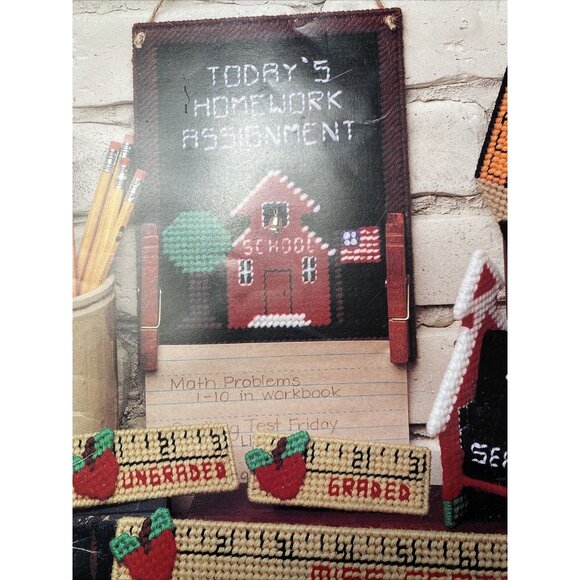 TODAY'S
HOMEWORK
ASSIGNMENT
SCHOOL
Math Problems
1-10 in workbook
Test Friday
UNGRADED
GRADED